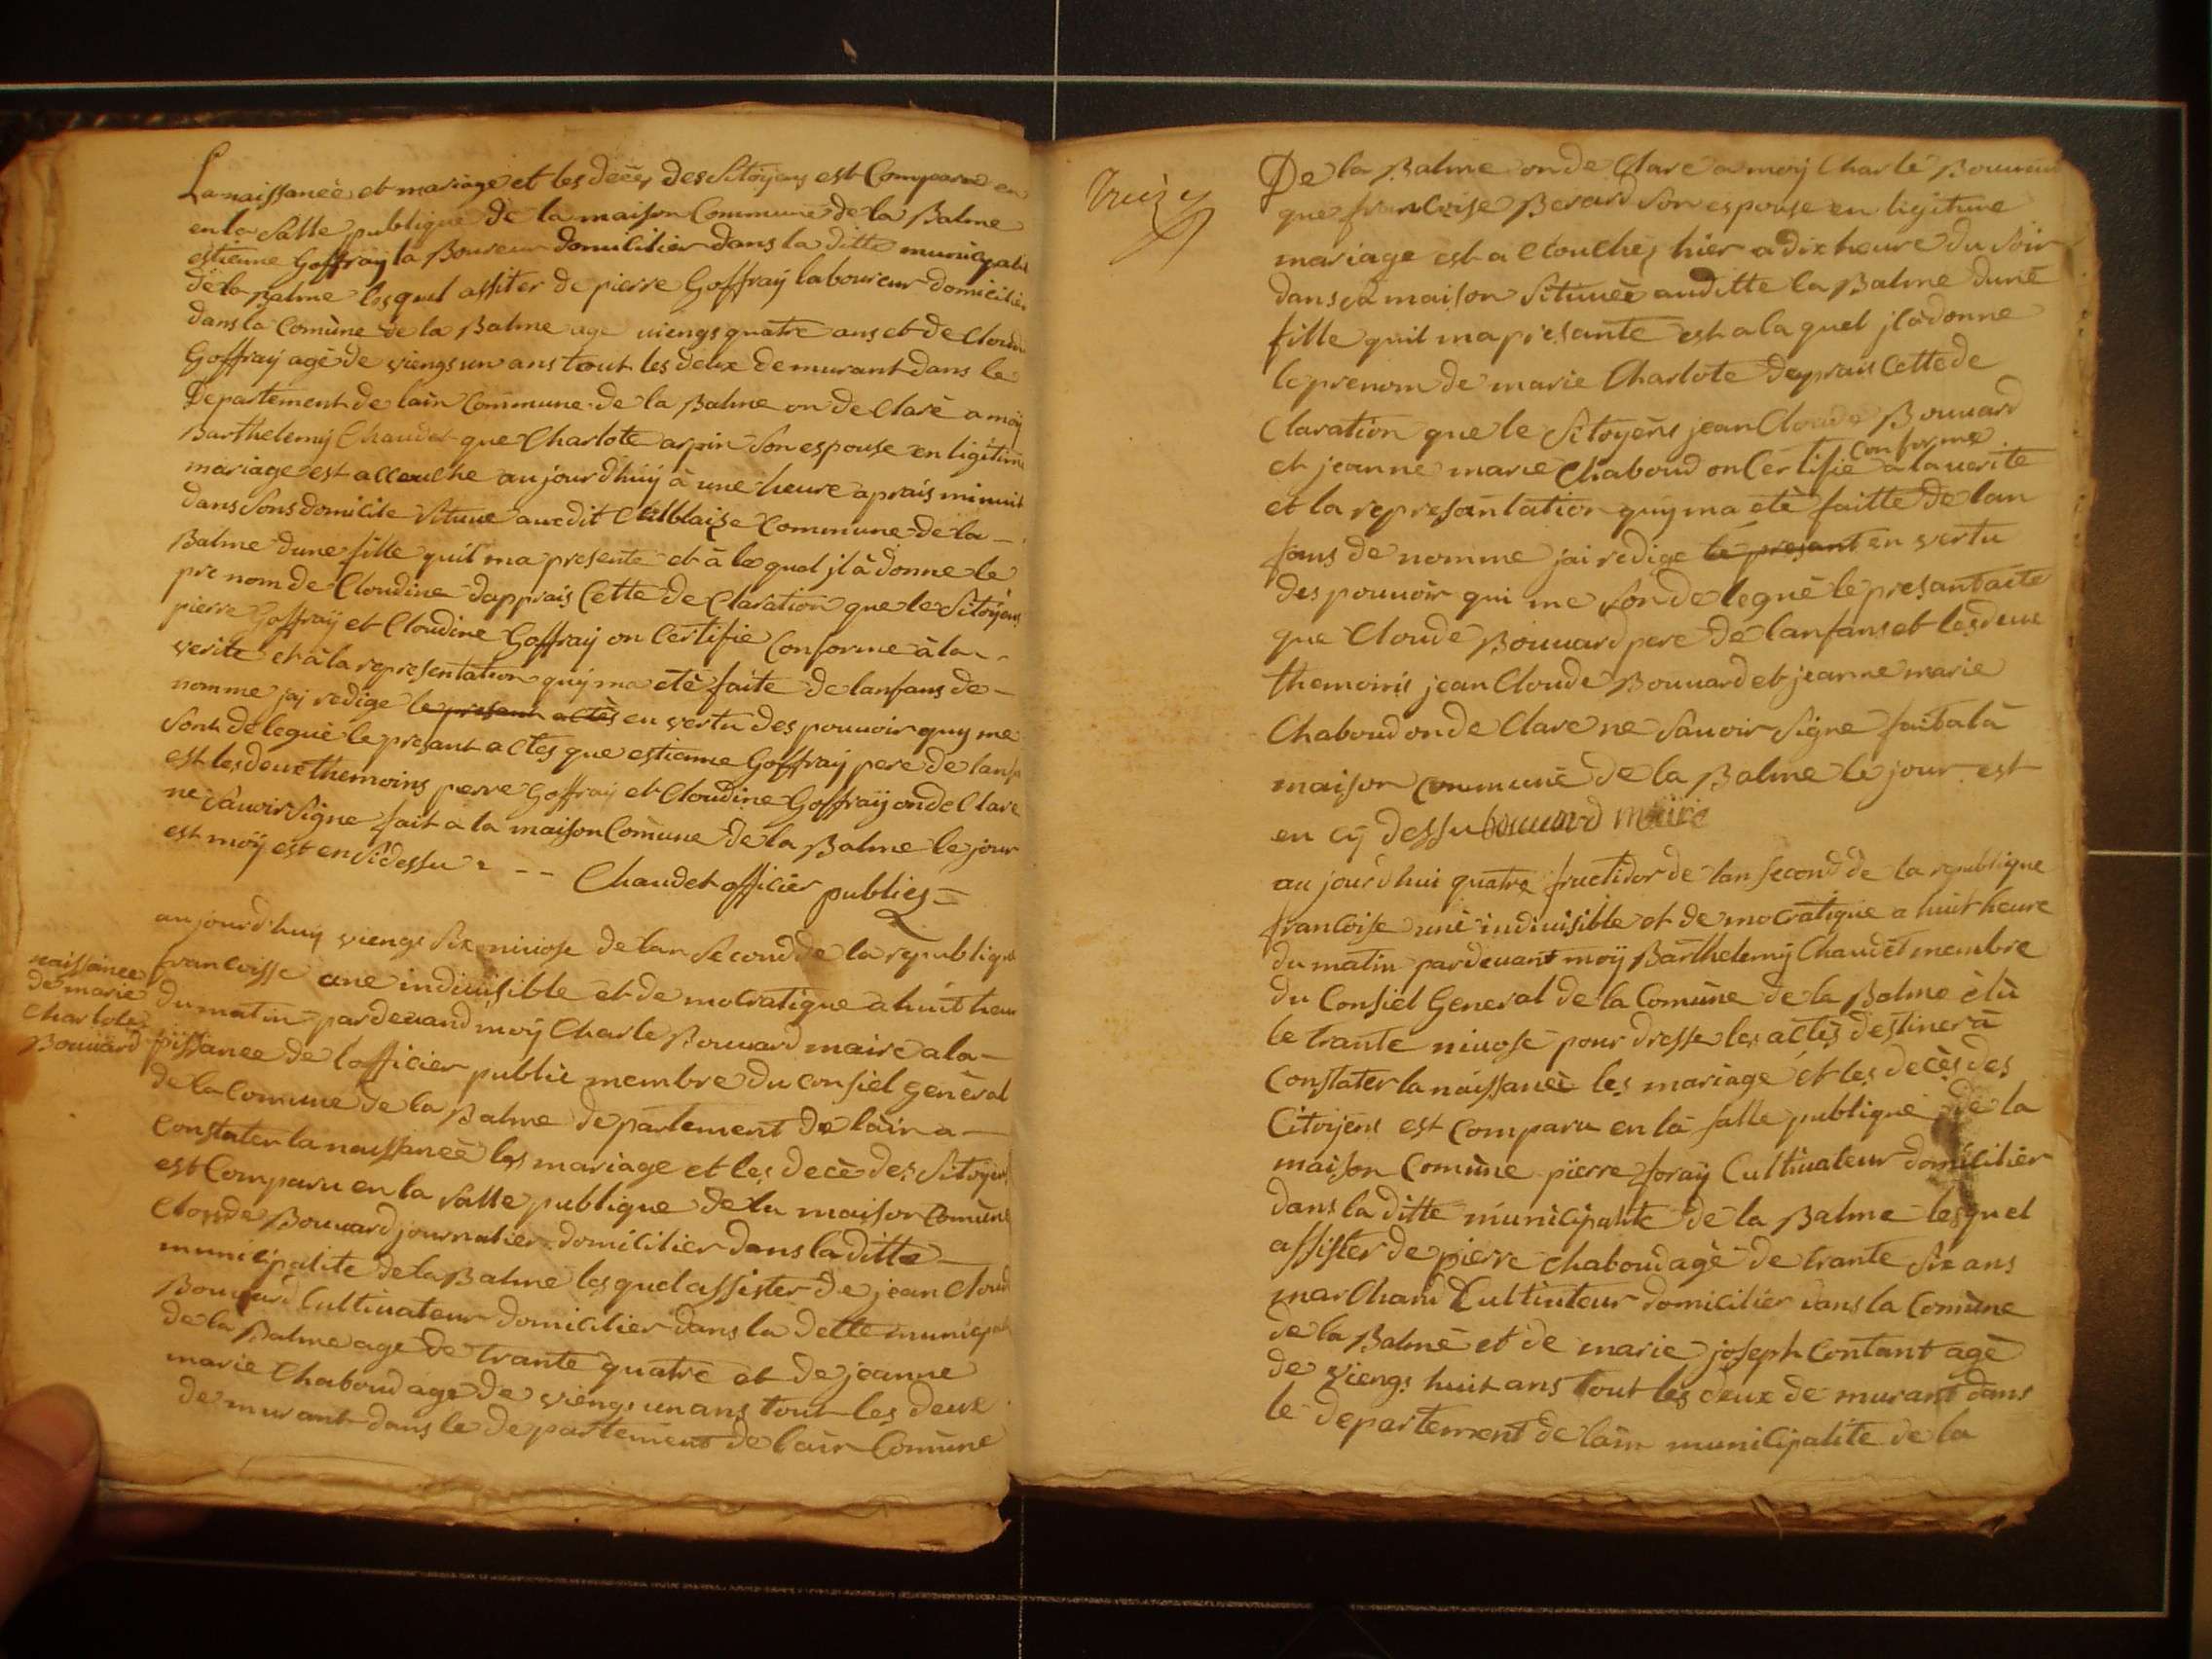 La naissanèe et mariage et les deces des Sitoyens est Comparu en
en la Salle publique de la maison Commune de la Balme
estienne Goffraÿ la Boureur domicilier dans la ditte municipalit
de la Balme lesquel assiter de pierre Goffraÿ laboureur domicilier
dans la Comùne de la Balme age viengs quatre ans et de Cloudi
Goffraÿ agé de viengs un ans tout les deux demurant dans le
Departement de lain Commune de la Balme on de Claré a moÿ
Barthelemÿ Chaudet que Charlote arpin Son espouse en ligitime
mariage est accouche aujourdhuÿ à une heure aprais minuit
dans Sons domicile Situue au dit Culblaise Commune de la –
Balme dune fille quil ma presente et à la quel jl à donne le
prenom de Cloudine dapprais Cette de Claration que le Sitoÿens
pierre Goffraÿ et Cloudine Goffraÿ on Certifie Conforme à la –
verite et à la representation quÿ ma etè faite de lanfans de –
nomme jaj redige le presant actès en vertu des pouvoir quy me
Sont deleguè le presant actes que estienne Goffraÿ pere de lanfa
est les deux themoins pierre Goffraÿ et Cloudine Goffraÿ on de Clare
ne Sauoir Signe fait a la maison Comune de la Balme le jour
est moÿ est en Sidessu - - - Chaudet officier publics =
naissance
de marie
Charlote
Bouuard
aujourd'huy viengs Six nivose de lan Second de la republique
francoisse une indiuisible et de mocratique a huit heur
du matin par deuand moÿ Charle Bouuard maire a la –
pissance de lofficier publiè membre du consiel Genèral
de la Comune de la Balme departement de làin a –
Constater la naissanèe les mariage et les decè des Sitoÿens
est Comparu en la Salle publique de la maison Comùne
Cloude Bouuard journalier domicilier dans la ditte –
municipalite de la Balme lesquel assister de jean Cloud
Bouuard Cultiuateur domicilier dans la dette municipali
de la Balme age de trante quatre et de jeanne
marie Chaboud age de viengs un ans tout les deux
demurant dans le departement de lain Comùne
Treize
De la Balme on de Clare a moÿ Charle Bouuard
que francoise Berard Son espouse en ligitime
mariage est a ccouchez hier a dix heure du Soir
dans sa maison Situuèe au ditte la Balme dune
fille quil ma presante est a la quel jl àdonne
le prenom de marie Charlote deprais Cette de
Claration que le Sitoyens jean Cloude Bouuard
et jeanne marie Chaboud on Certifie Conforme a la uerite
et la represantation quÿ ma etè faitte de lan
fans de nomme jai redige le presant en vertu
des pouuoir qui me Son de leguè le presant aite
que Cloude Bouuard pere de lanfans et les deux
themoins jean Cloude Bouuard et jeanne marie
Chaboud on de Clare ne Sauoir Signe fait a là
maison Communè de la Balme le jour est
en cÿ dessu bouuard maire
au jourdhui quatre fructidor de lan second de la republique
francoise une indiuisible et de mocratique a huit heure
du matin pardeuant moÿ Barthelemÿ Chaudet membre
du Consiel General de la Comùne de la Balme èlù
le trante niuose pour dresse les actès destiner à
Constater la naissanèe les mariage et les decès des
Citoÿens est Comparu en là salle publique de la
maison Comùne pierre foraÿ Cultiuateur domicilier
dans la ditte municipalite de la Balme lesquel
assister de pierre Chaboud agè de trante Six ans
marChand Cultiuteur domicilier dans la Comùne
de la Balmè et de marie joseph Contant agè
de viengs huit ans tout les deux de murant dans
le departement de lain municipalite de la